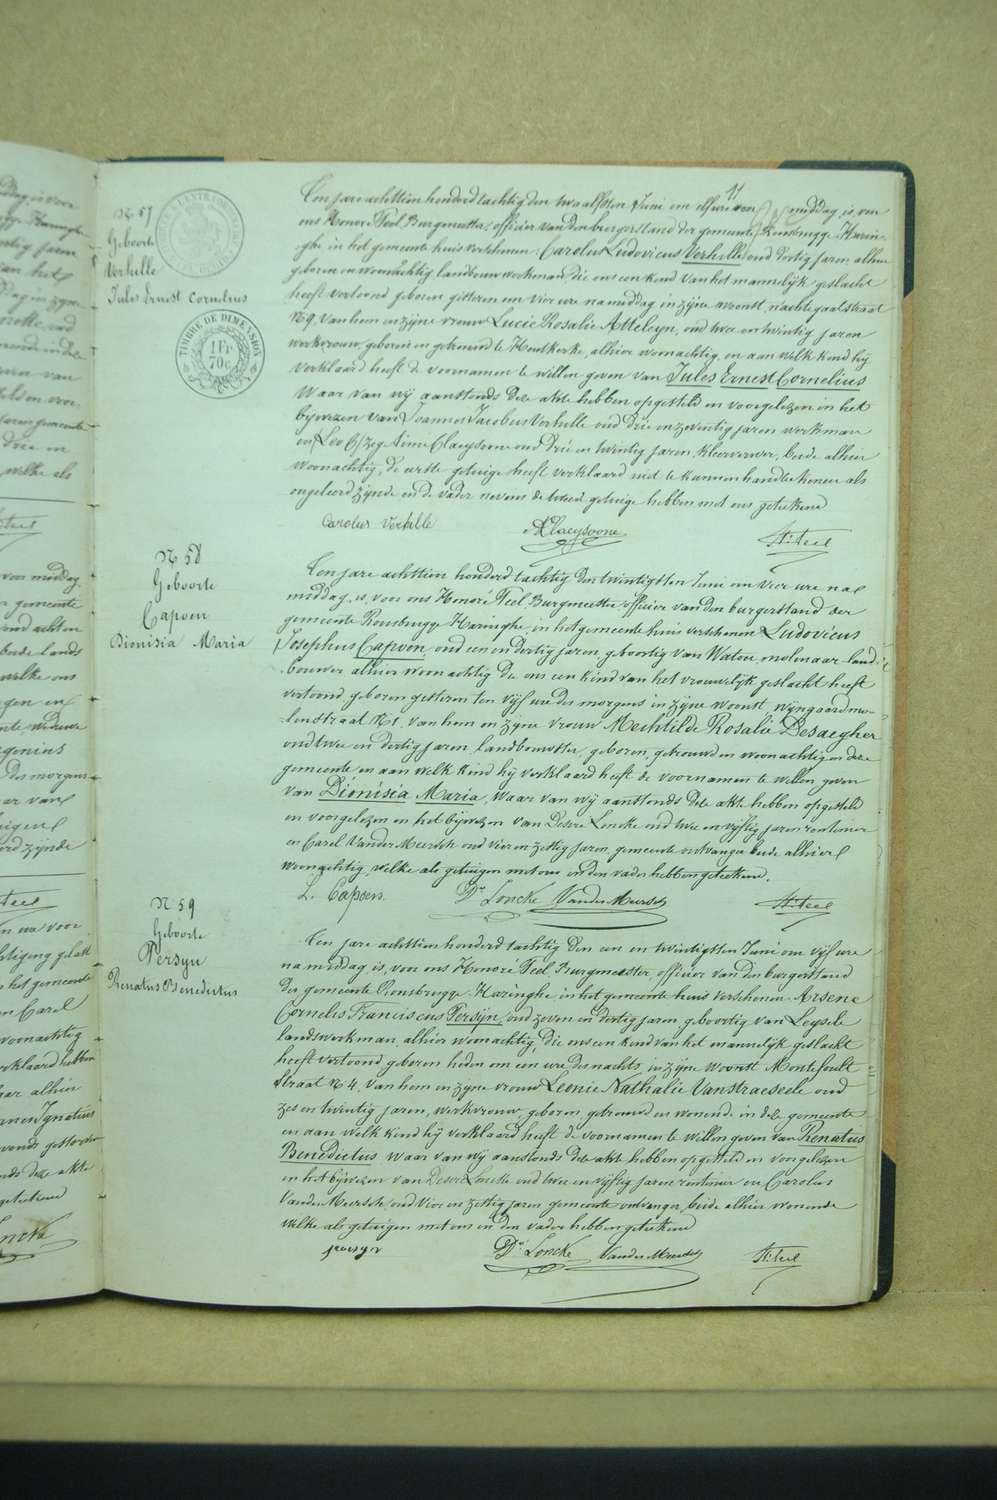 17
N 57
Geboorte
Verhille
Jules Ernest Cornelius
TIMBRE DE DIMENSION
1 Fr
70 c
Een jare achttien honderd tachtig den twaalfsten Juni om elf ure voormiddag, is, voor
ons Honoré Teel Burgmeester, officier van den burgerstand der gemeente Rousbrugge-Harin-
ghe in het gemeente huis verschenen: Carolus Ludovicus Verhille oud dertig jaren, alhier
geboren en woonachtig landbouwwerkman, die ons een kind van het mannelijk geslacht
heeft vertoond geboren gisteren om vier ure namiddag in zijne woonst, nachtegaalstraat
N 9, van hem en zijne vrouw Lucie Rosalie Atteleyn, oud twee en twintig jaren
werkvrouw, geboren en getrouwd te Houtkerke, alhier woonachtig, en aan welk kind hij
verklaard heeft de voornamen te willen geven van Jules Ernest Cornelius
Waar van wij aanstonds deze akte hebben opgesteld en voorgelezen in het
bijwezen van Joannes Jacobus Verhille oud drie en zeventig jaren werkman
en Leo G/zeg Aimé Claeysoone oud drie en twintig jaren, kleerverwer, beide alhier
woonachtig, de eerste getuige heeft verklaard niet te kunnen handteekenen als
ongeleerd zijnde en de vader nevens de tweede getuige hebben met ons geteekend
Carolus Verhille A Claeysoone H. Teel
N 58
Geboorte
Capoen
Dionisia Maria
Een jare achttien honderd tachtig den twintigsten Juni om vier ure na
middag, is, voor ons Honoré Teel, Burgmeester, officier van den burgerstand der
gemeente Rousbrugge Haringhe, in het gemeente huis verschenen Ludovicus
Josephus Capoen, oud een en dertig jaren, geboortig van Watou, molenaar land
bouwer alhier woonachtig die ons een kind van het vrouwelijk geslacht heeft
vertoond geboren gisteren ten vijf ure des morgens in zijne woonst wijngaardmo-
lenstraat N 1, van hem en zijne vrouw Mechtilde Rosalie Desaegher
oud twee en dertig jaren landbouwster, geboren, getrouwd en woonachtig in deze
gemeente en aan welk kind hij verklaard heeft de voornamen te willen geven
van Dionisia Maria, waar van wij aanstonds deze akte hebben opgesteld
en voorgelezen in het bijwezen van Desiré Loncke oud twee en vijftig jaren rentenier
en Carel Vander Meersch oud vier en zestig jaren, gemeente ontvanger beide alhier
woonachtig, welke als getuigen met ons en den vader hebben geteekend.
L. Capoen Dré Loncke VanderMeersch H. Teel
N 59
Geboorte
Persyn
Renatus Benedictus
Een jare achttien honderd tachtig den een en twintigsten Juni om vijf ure
na middag, is, voor ons Honoré Teel Burgmeester, officier van den burgerstand
der gemeente Rousbrugge-Haringhe in het gemeente huis verschenen Arsene
Cornelis Franciscus Persyn, oud zeven en dertig jaren geboortig van Leysele
landswerkman, alhier woonachtig, die ons een kind van het mannelijk geslacht
heeft vertoond geboren heden om een ure des nachts in zijne woonst Montefoult
straat N 4, van hem en zijne vrouw Leonie Nathalie Vanstraeseele oud
zes en twintig jaren, werkvrouw, geboren, getrouwd en wonende in deze gemeente
en aan welk kind hij verklaard heeft de voornamen te willen geven van Renatus
Benedictus waar van wij aanstonds deze akte hebben opgesteld en voorgelezen
in het bijwezen van Desiré Loncke oud twee en vijftig jaren rentenier en Carolus
Vander Meersch oud vier en zestig jaren gemeente ontvanger, beide alhier wonende
welke als getuigen met ons en den vader hebben geteekend
persyn Dré Loncke VanderMeersch H. Teel